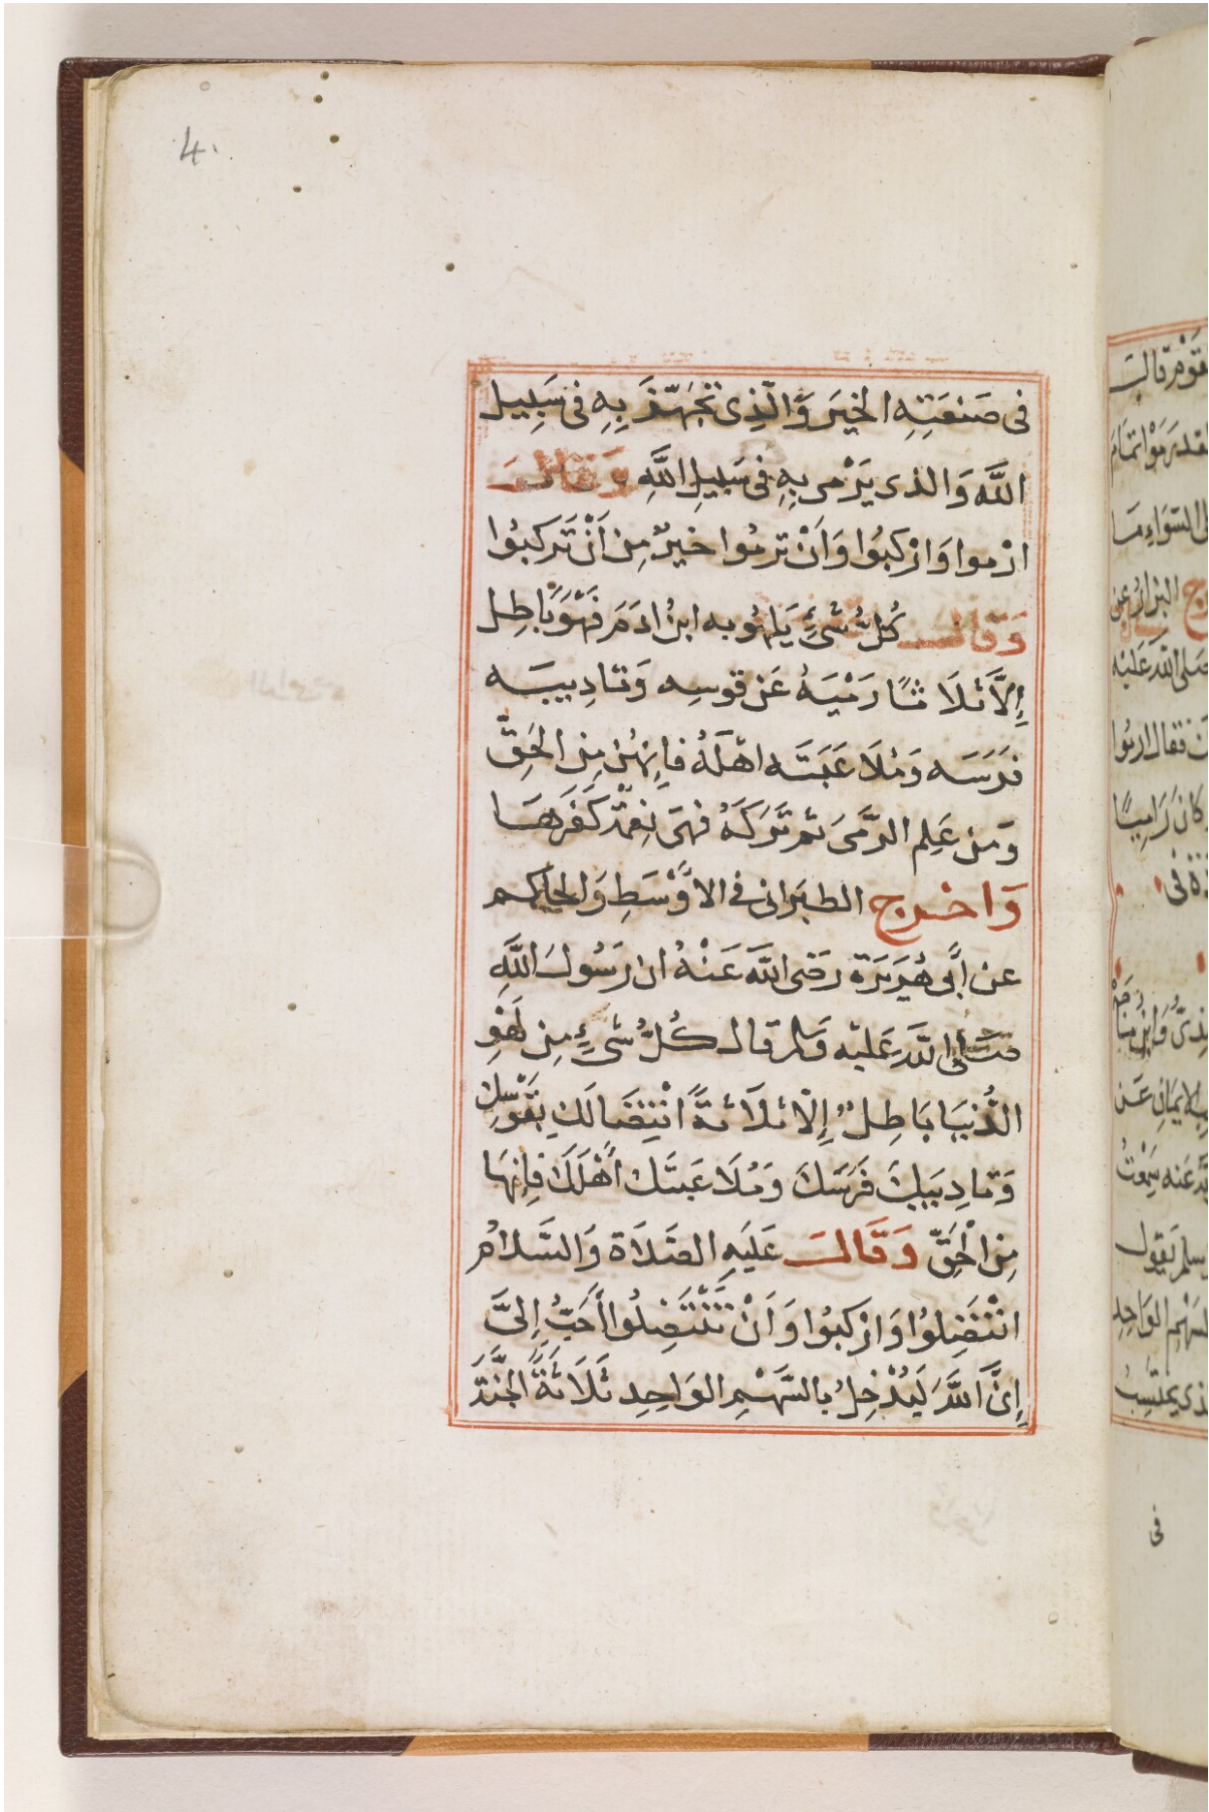 4.
فى صَنعَتِهِ الخيَر وَالّذِى تجَهّزَ بِهِ فى سَبِيل
اللَّه وَالذى يَرْمى بِهِ فى سَبيلِ اللَّهِ وَقَالَ
ارْموا وَارْكبُوا وَاَنْ ترمُوا خيرٌ مِن اَنْ تَركبُوا
وَقَالَ كُلُّ شَئٍ يَلهُو به ابنُ ادَمَ فَهُوَ بَاطِل
إِلاَّ ثَلاَ ثًا رَميَهُ عَن قوسِه وَتادِيبَه
فَرَسَه وَمُلاَ عَبَتَه اهْلَهُ فاِنهُن مِن الحَقّ
وَمَن عَلِم الرَّمىَ ثم تَرَكَهُ فهىَ نِعْمَةٌ كَفَرهَا
وَاخرج الطبَرانى فى الاَوْسَطِ وَالحاكِم
عن اَبى هُرَيرَة رضَى اللَّه عَنْهُ ان رَسُولَ اللَّهِ
صَلى اللَّه عَليْه وَسلم قال كُلُّ شَئٍ مِن لَهْوِ
الدُّنيَا بَاطِلٌ إِلاّ ثلاَثةً انْتِضَالَكَ بِقَوْسِكَ
وَتادِيبَكَ فَرَسَكَ وَمُلاَ عَبتَك اَهْلَكَ فاِنهَا
مِنَ الْحَقّ وَقَالَ عَلَيهِ الصَّلاَة وَالسَّلاَمُ
انْتَضِلوُا وَارْكبوُا وَاَنْ تَنْتَضِلُوا اَحَبُّ اِلىَّ
إِنَّ اللَّهَ لَيُدْخِلُ بالسَّهْمِ الوَاحِدِ ثَلاَثَةً الجنَّةَ
فى